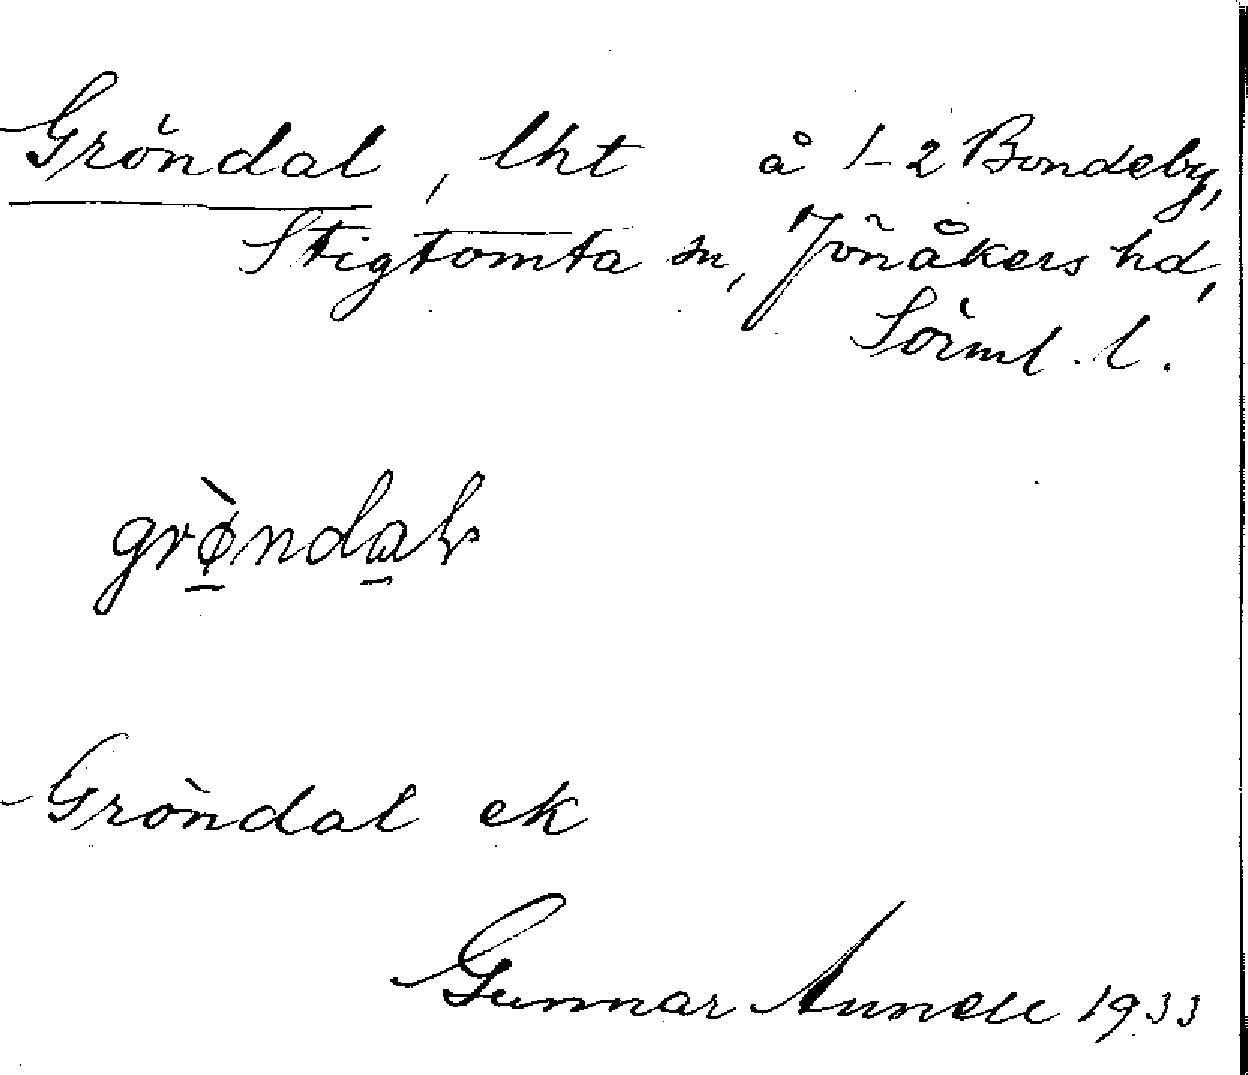 Gröndal, lht å 1-2 Bondeby,
Stigtomta sn, Jönåkers hd,
Sörml. l.
grø̀ndal
Gröndal ek
Gunnar 1933